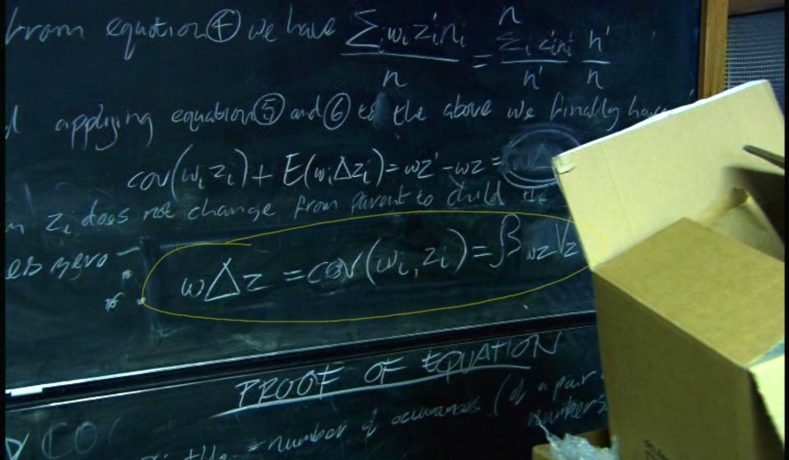 from equation ④ we have Σ wᵢ z'ᵢ nᵢ / n = Σ z'ᵢ n'ᵢ / n' n' / n
applying equation ⑤ and ⑥ to the above we finally have
cov(wᵢ zᵢ) + E(wᵢ Δzᵢ) = wz' - wz = wΔ
zᵢ does not change from parent to child the
es zero -
wΔz = cov(wᵢ, zᵢ) = β wz Vz
PROOF OF EQUATION
CO
= number of occurances (of a pair
numbers